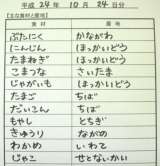 平成 24年 10月 24日分
【主な食材と産地】
食材 産地
ぶたにく かながわ
にんじん ほっかいどう
たまねぎ ほっかいどう
こまつな さいたま
じゃがいも ほっかいどう
たまご ちば
だいこん ちば
もやし とちぎ
きゅうり ながの
わかめ いわて
じゃこ せとないかい